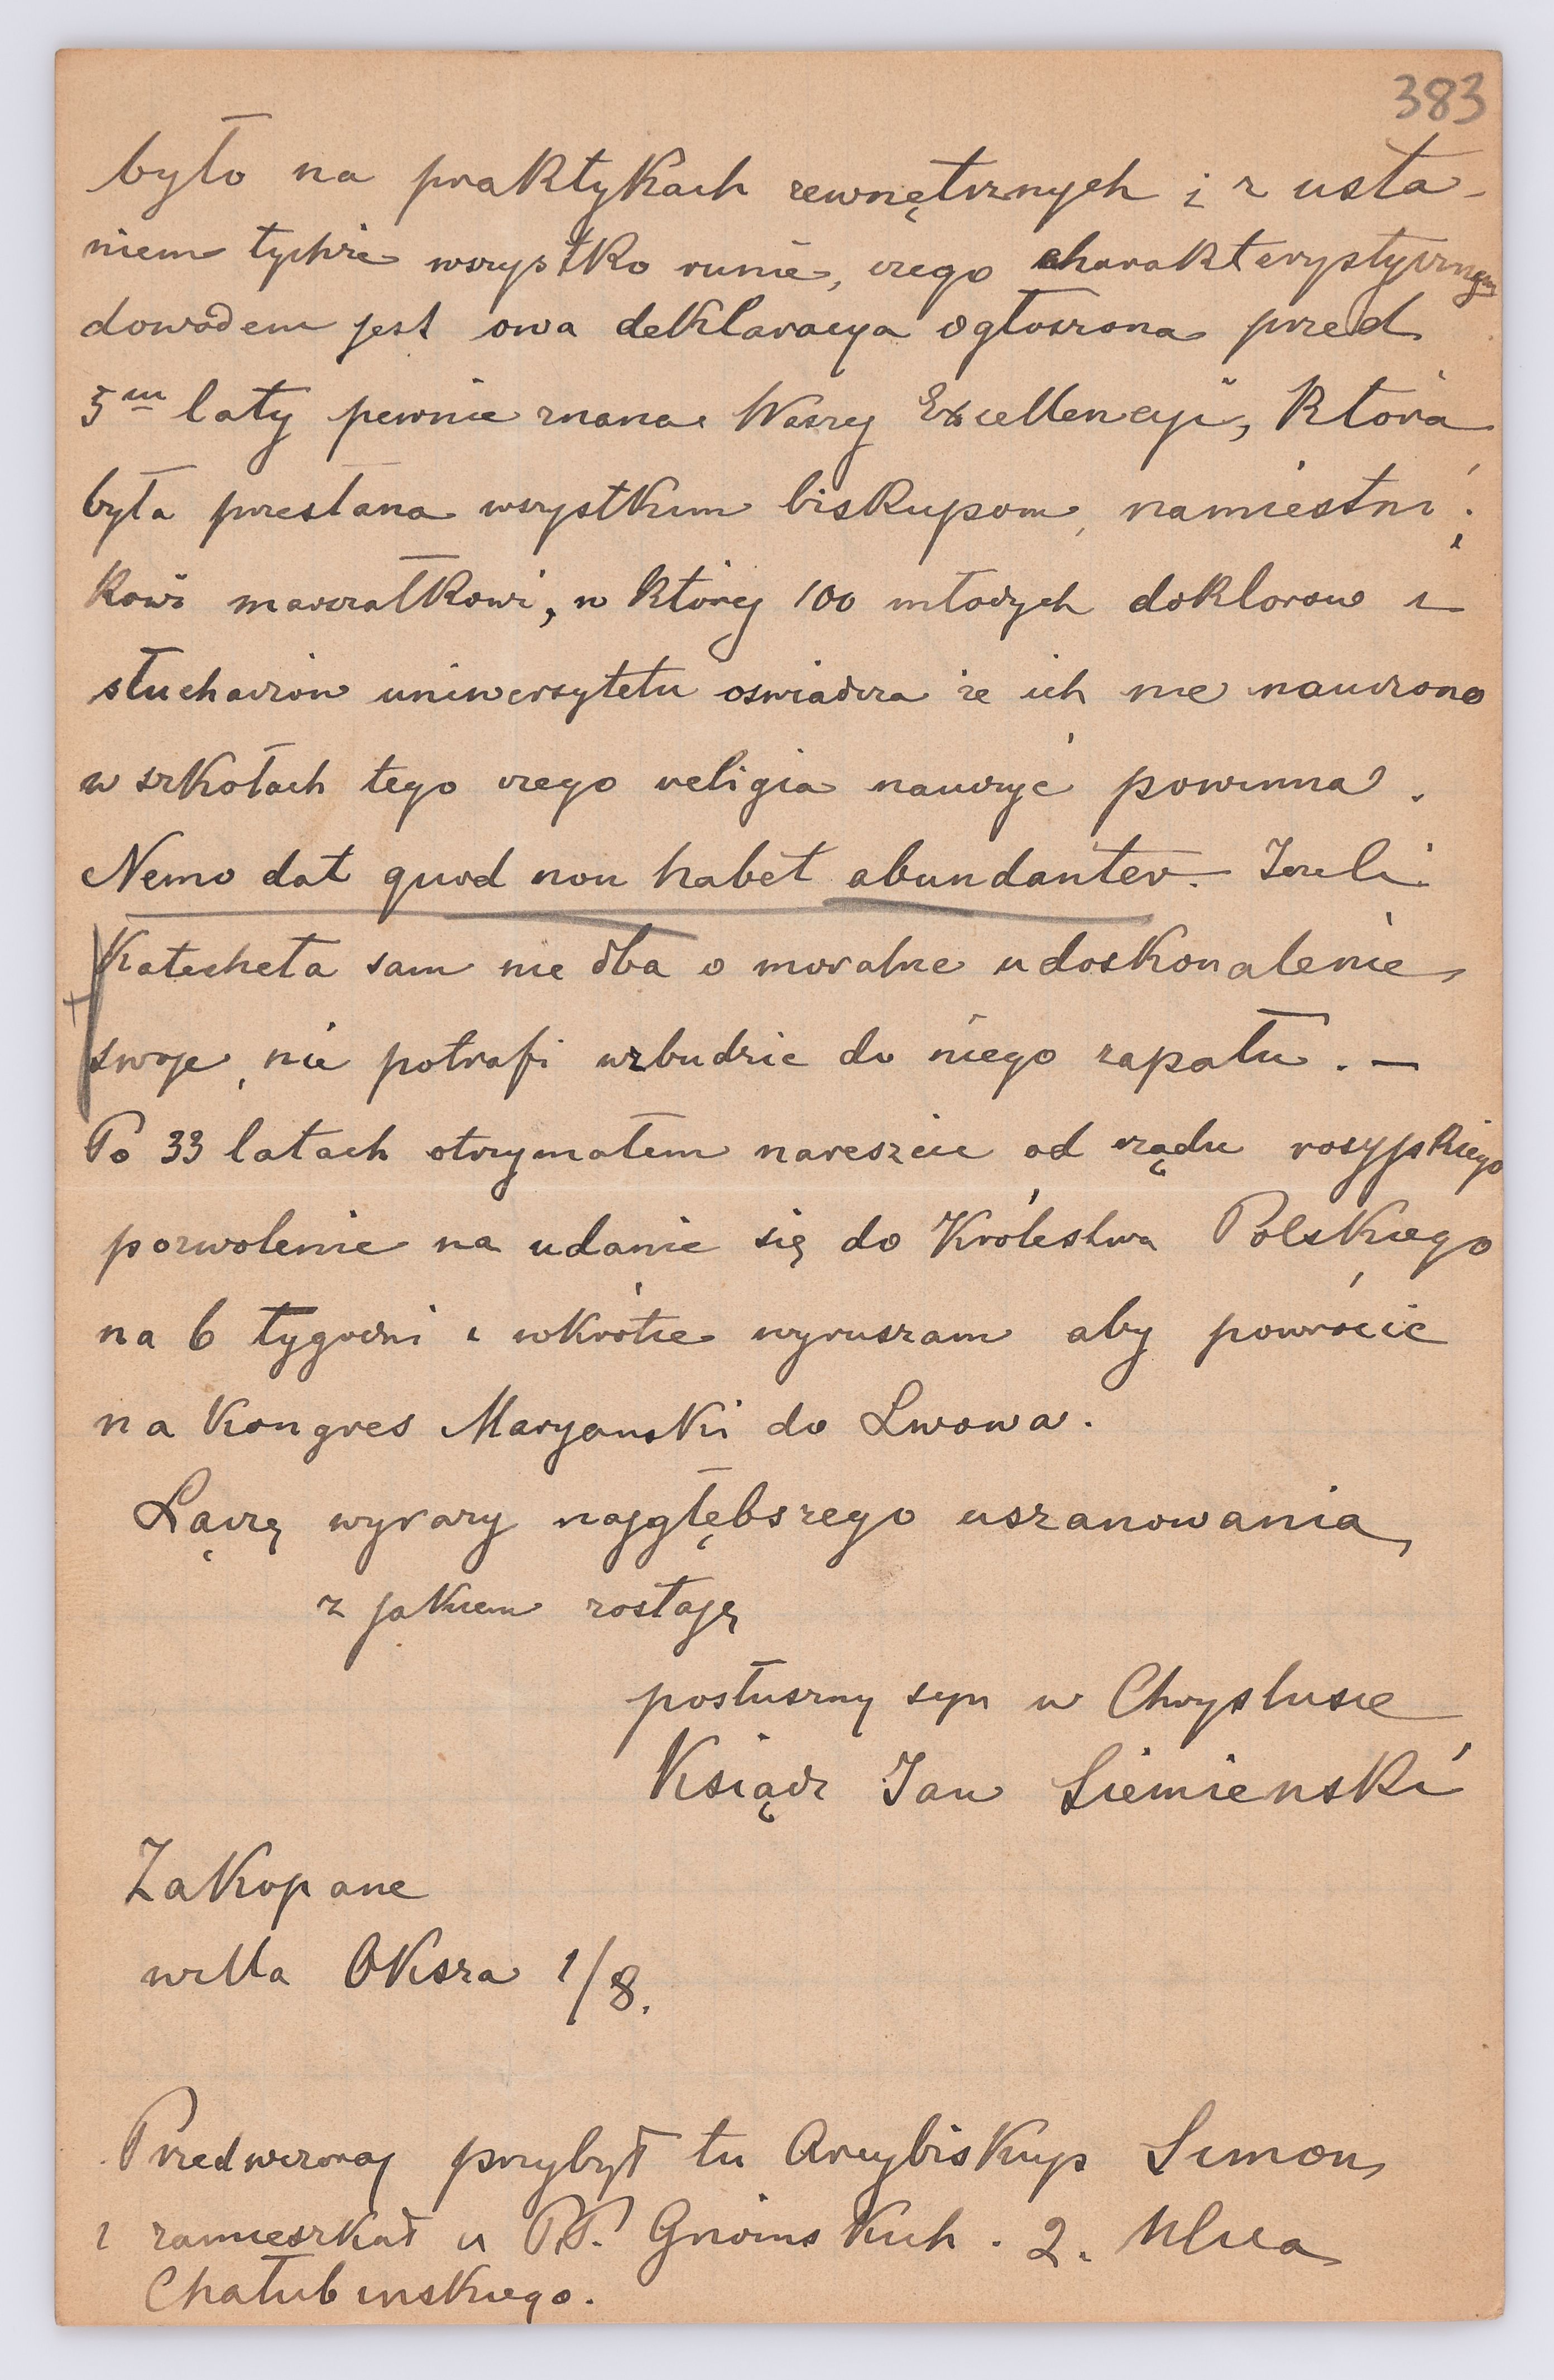 383
było na praktykach zewnętrznych i z usta-
niem tychże wszystko runie, czego charakterystycznym
dowodem jest owa deklaracya ogłoszona przed
5ᵐ laty pewnie znana Waszej Excellencyi, która
była przesłana wszystkim biskupom, namiestni
kowi marszałkowi, w której 100 młodych doktorow i
słuchaczów uniwersytetu oswiadcza że ich nie nauczono
w szkołach tego czego religia nauczyć powinna.
Nemo dat quod non habet abundanter. Jeżeli
Katecheta sam nie dba o moralne udoskonalenie
swoje, nie potrafi wzbudzic do niego zapału. —
Po 33 latach otrzymałem nareszcie od rządu rosyjskiego
pozwolenie na udanie się do Królestwa Polskiego
na 6 tygodni i wkrótce wyruszam aby powrócic
na Kongres Maryanski do Lwowa.
Łączę wyrazy najgłębszego uszanowania
z jakiem zostaję
posłuszny syn w Chrystusie
Ksiądz Jan Siemienski
Zakopane
willa Oksza 1/8.
Przedwczoraj przybył tu Arcybiskup Simon
i zamieszkał u PP. Gnoinskich. 2. Ulica
Chałubinskiego.